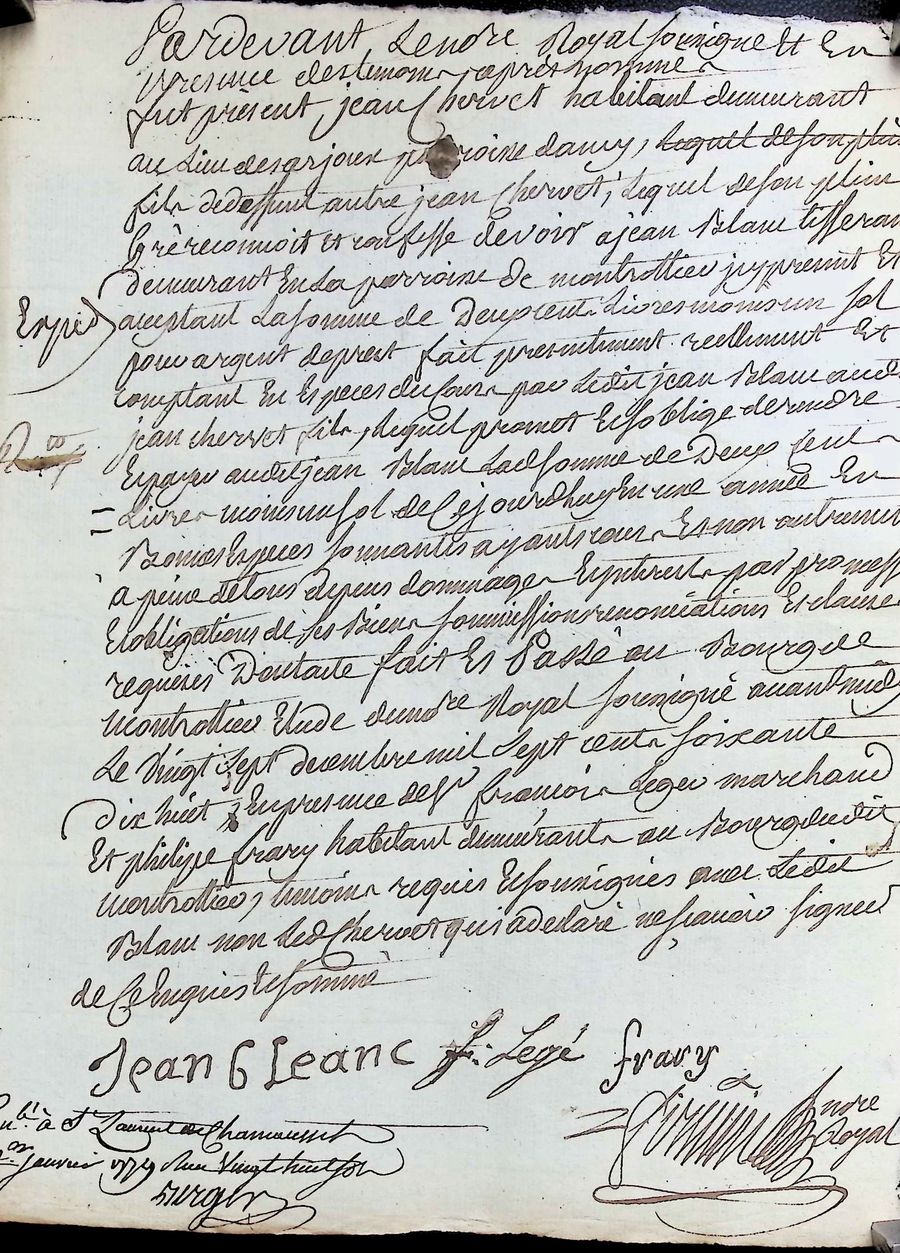 Pardevant Le nore Royal sousigné Et En
presence des temoins apres nommés
fut present, jean Chervet habitant demeurant
au Lieu desarjoux parroisse dancy, Lequel de son plein
fils dedeffunt autre jean Chervet, Lequel deson plein
Gré reconnoit et confesse devoir a jean Blanc tisseran
demeurant En La parroisse de montrottier jcy present Et
Exped
acceptant La somme de Deux cent Livres moins un sol
pour argent de prest fait presentement reellement Et
comptant En Especes du Cours par Ledit jean Blanc aud
jean chervet fils, Lequel promet Et soblige de rendre
Et payer audit jean Blanc Lad somme de Deux Cent
Livres moins un sol de Ce jourdhuy En une année En
Bonnes Especes sonnantes ayants cours Et non autrement
à peine de tous depens dommages Et interets par promesse
Et obligations de ses Biens soumissions renonciations Et clauses
requises Dont acte fait Et Passé au Bourg de
Montrottier Etude du nore Royal sousigné avant midy
Le Vingt Sept decembre mil Sept cent soixante
dix huit En presence de Sr françois Leger marchand
Et philippe frary habitant demeurants au Bourg dudit
montrottier, temoins requis Et sousignés avec Ledit
Blanc non Led Chervet qui a declaré ne sçavoir signer
de Ce Enquis Et sommé
Jean bLeanc f. Legé frary
nore Royal
à St Laurent de Chamousset
janvier 1779 Reçu Vingt huit sols